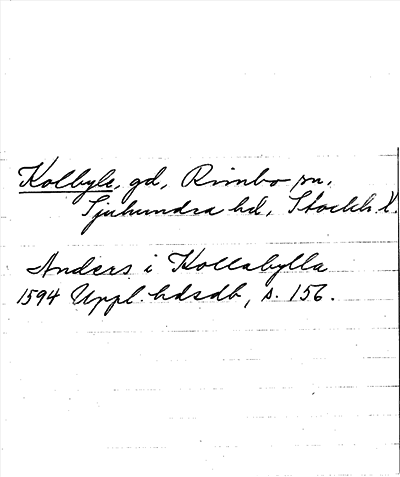 Kolbyle, gd, Rimbo sn,
Sjuhundra hd, Stockh. l.
Anders i Kollabylla
1594 Uppl. hdsdb, s. 156.